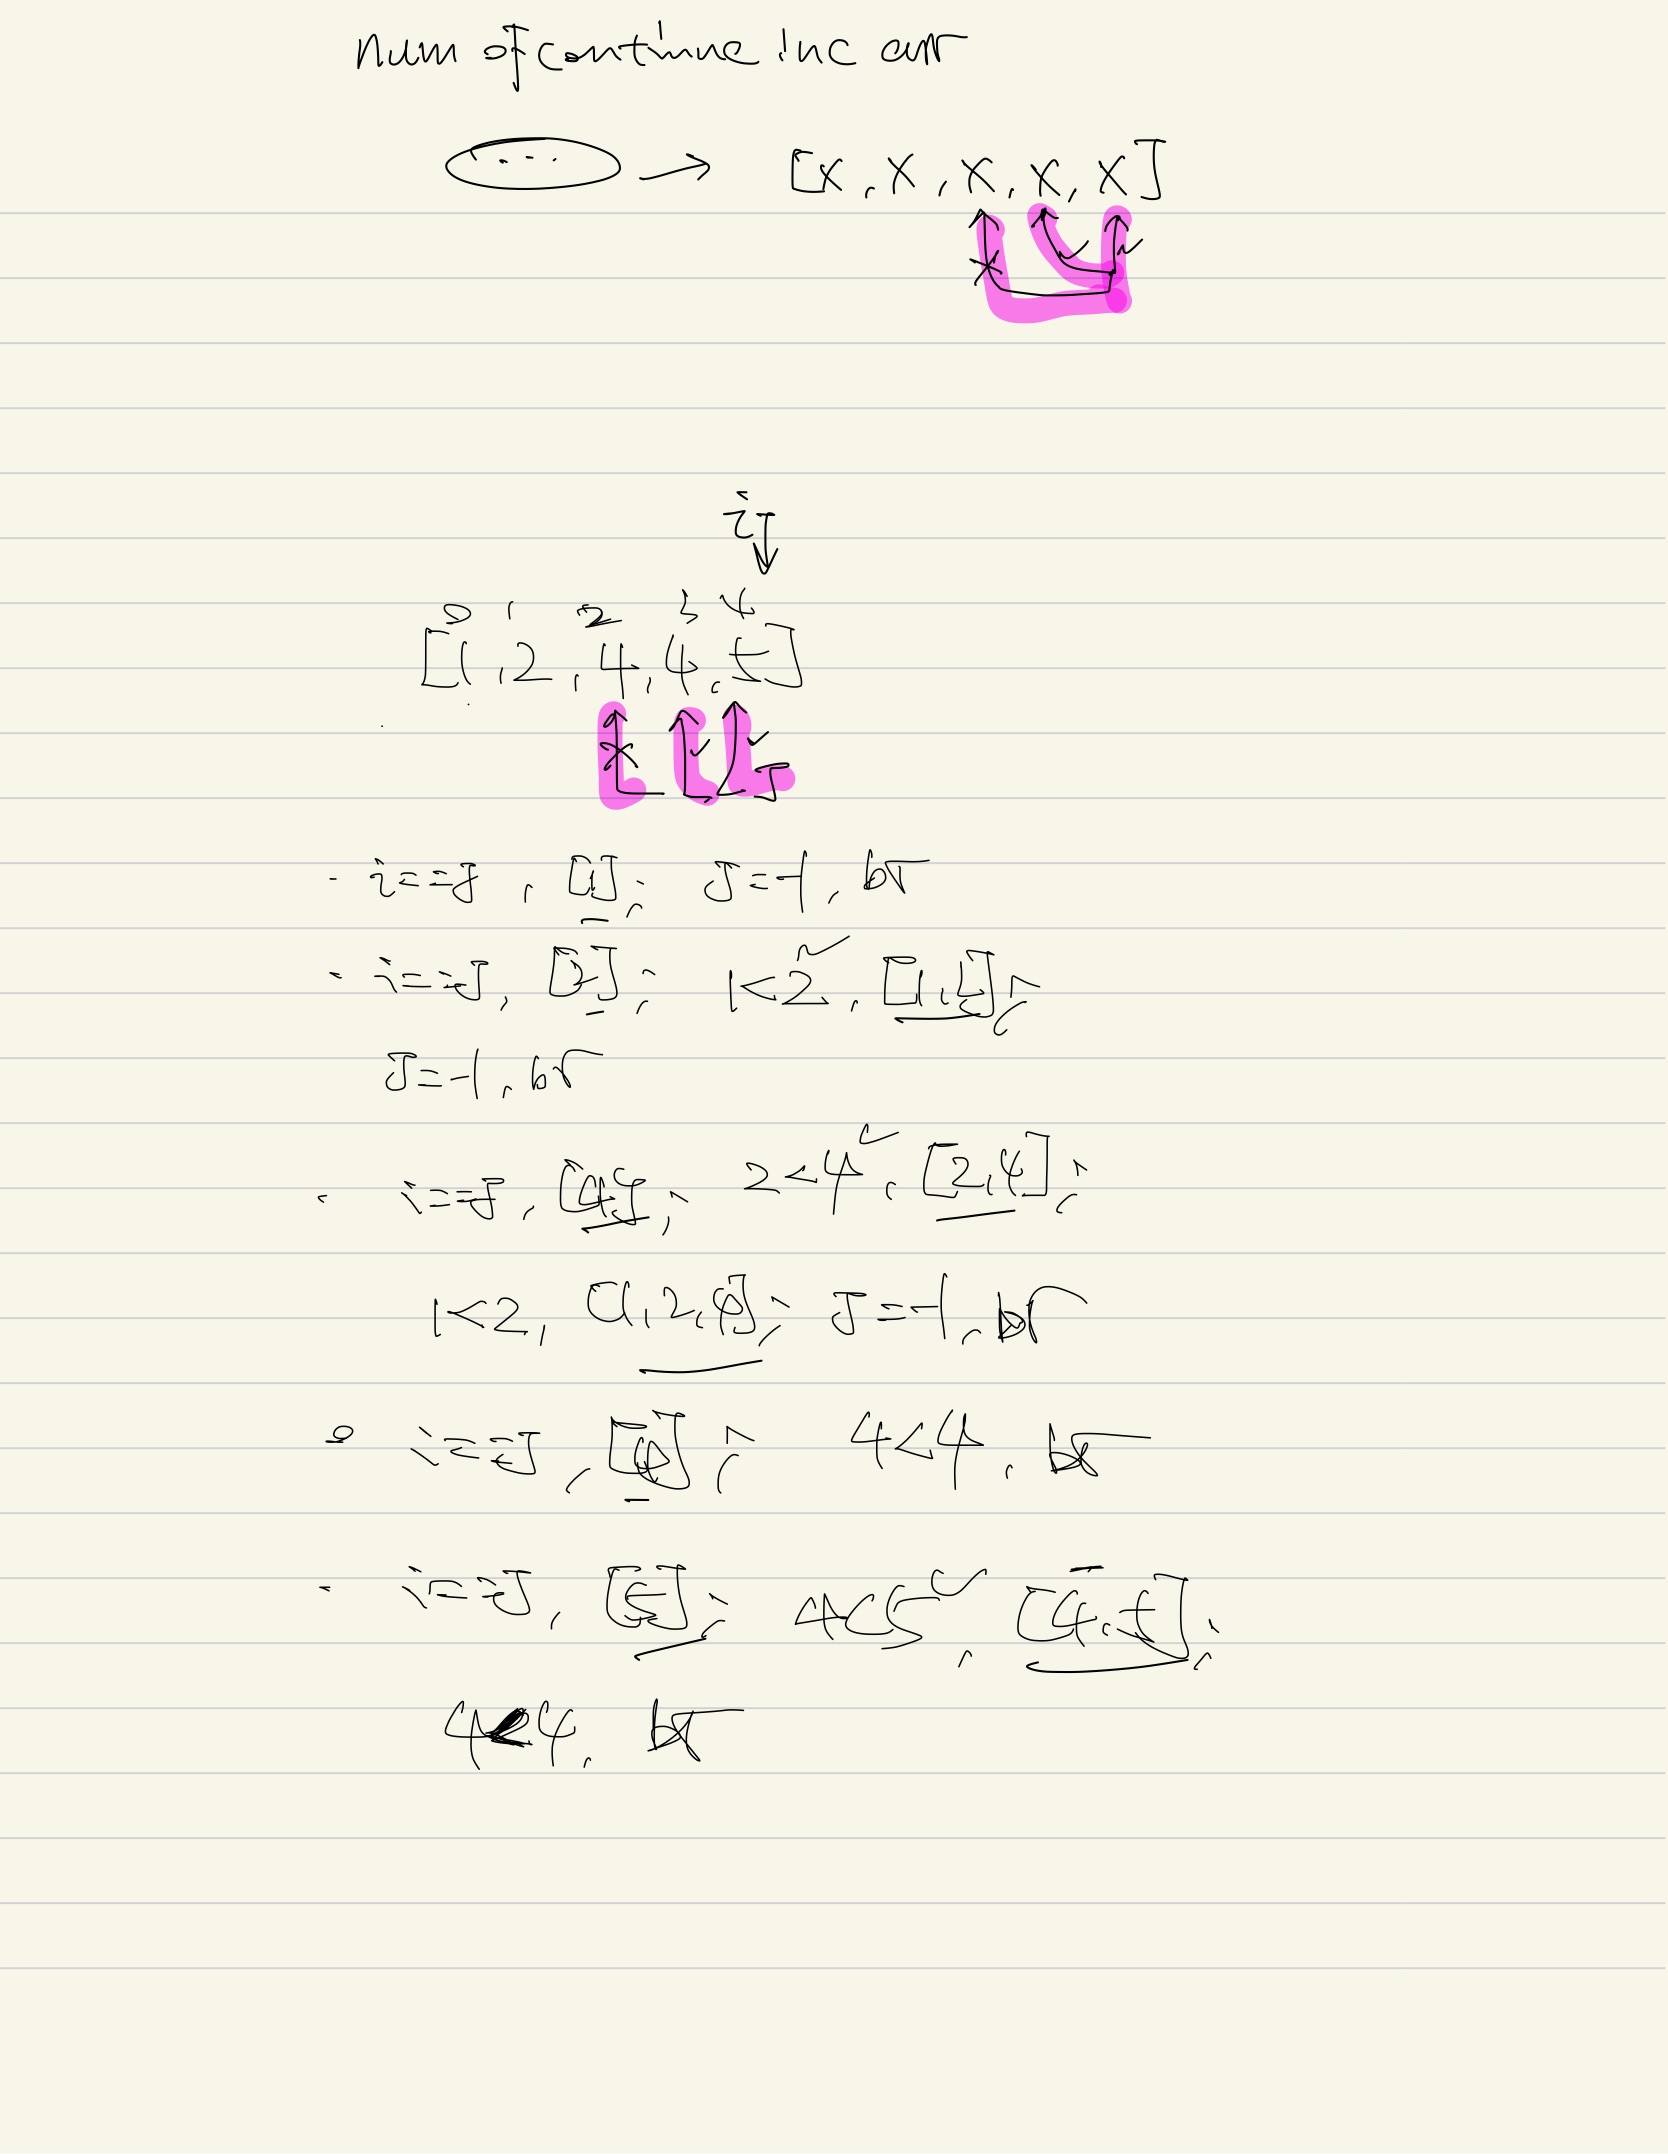 num of continue inc arr
.... → [x, x, x, x, x]
i
0 1 2 3 4
[1, 2, 4, 4, 5]
J
- i==J, [1]; J=-1, br
- i==J, [2]; 1<2 ✓, [1,2];
J=-1, br
- i==J, [4]; 2<4 ✓, [2,4];
1<2, [1,2,4]; J=-1, br
- i==J, [4]; 4<4, br
- i==J, [5]; 4<5 ✓, [4,5];
4<4, br